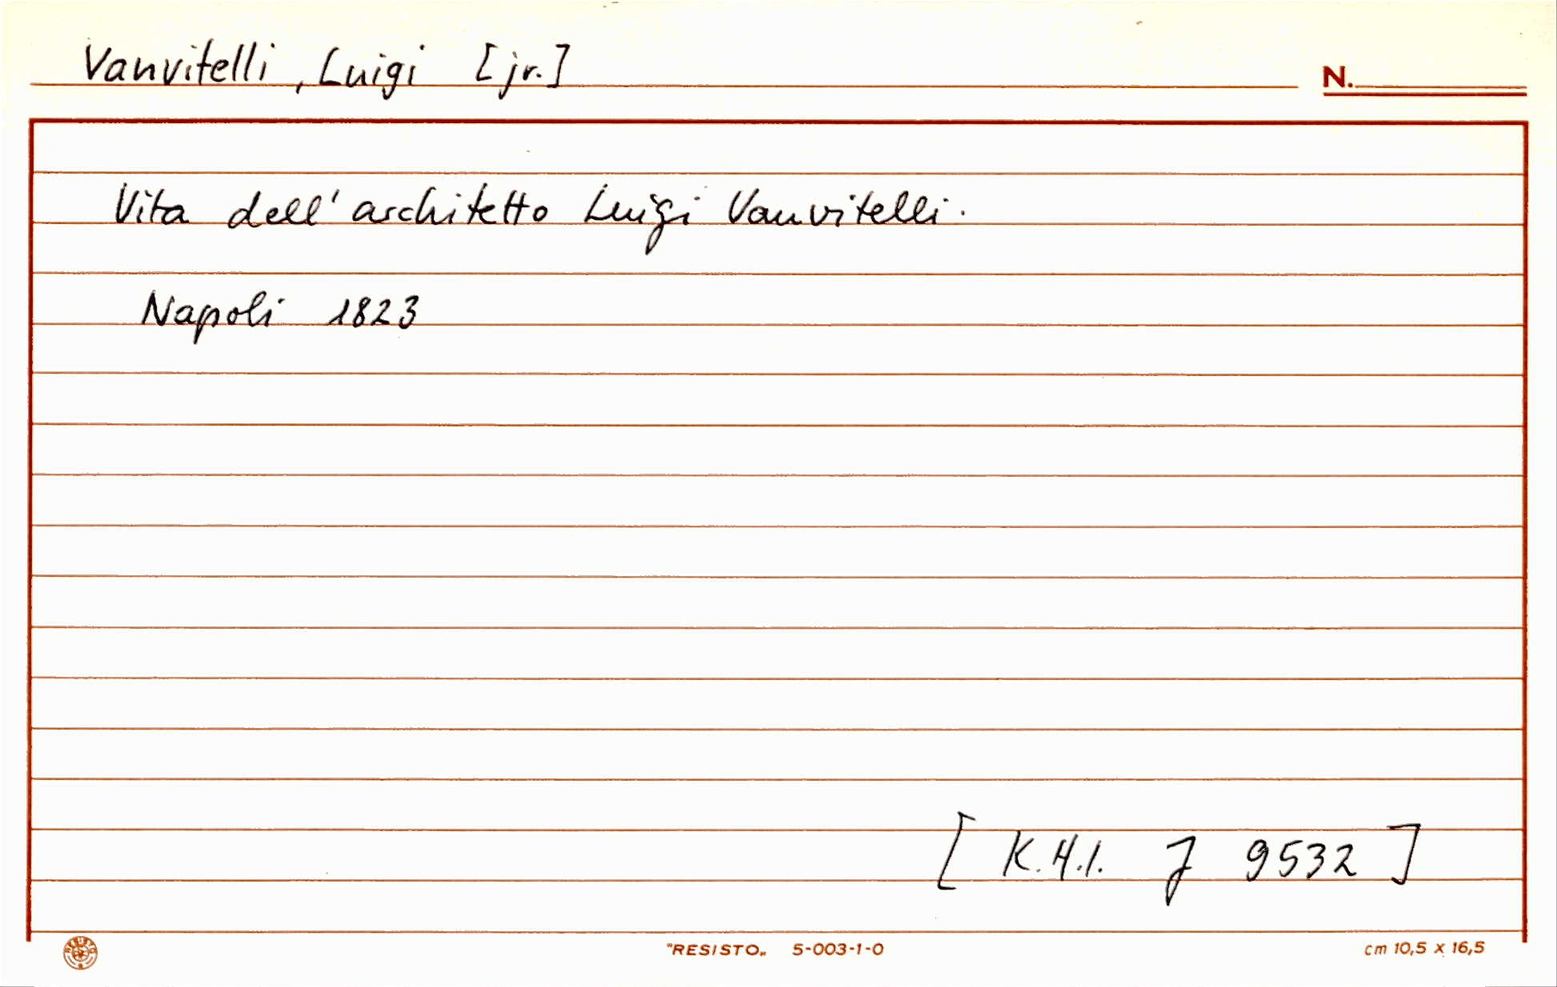 Vanvitelli, Luigi [jr.]
N.
Vita dell'architetto Luigi Vanvitelli.
Napoli 1823
[ K.H.I. J 9532 ]
RESISTO
"RESISTO„ 5-003-1-0
cm 10,5 x 16,5